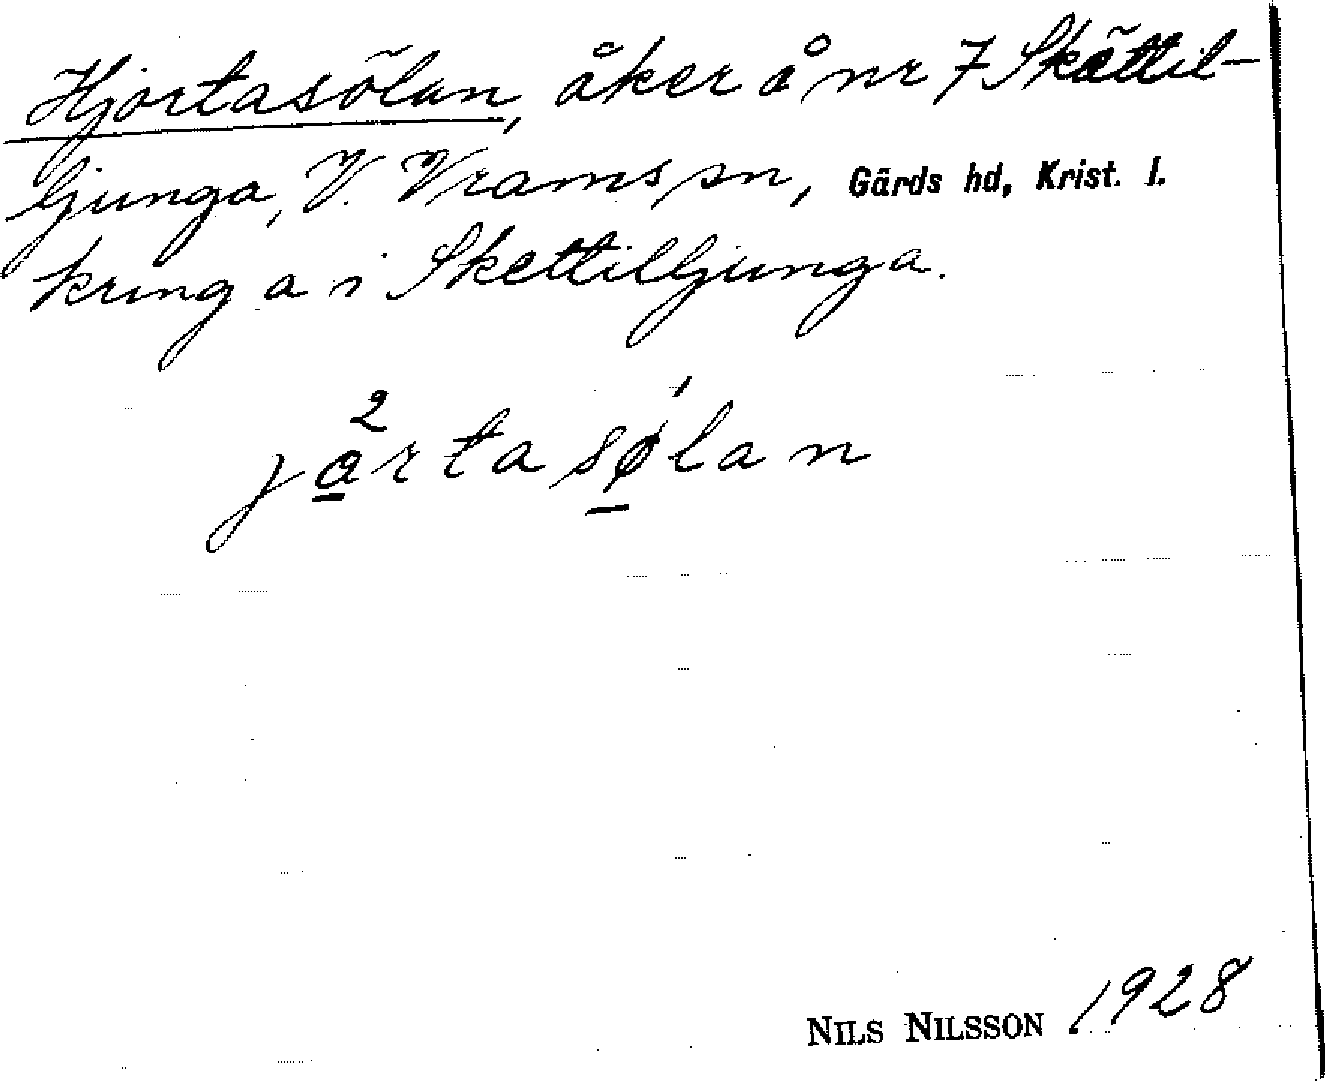 Hjortasölan, åker å nr 7 Skättil-
ljunga, V. Vrams sn, Gärds hd, Krist. l.
kring a i Skettilljunga.
2
jartasø̱lan
NILS NILSSON 1928